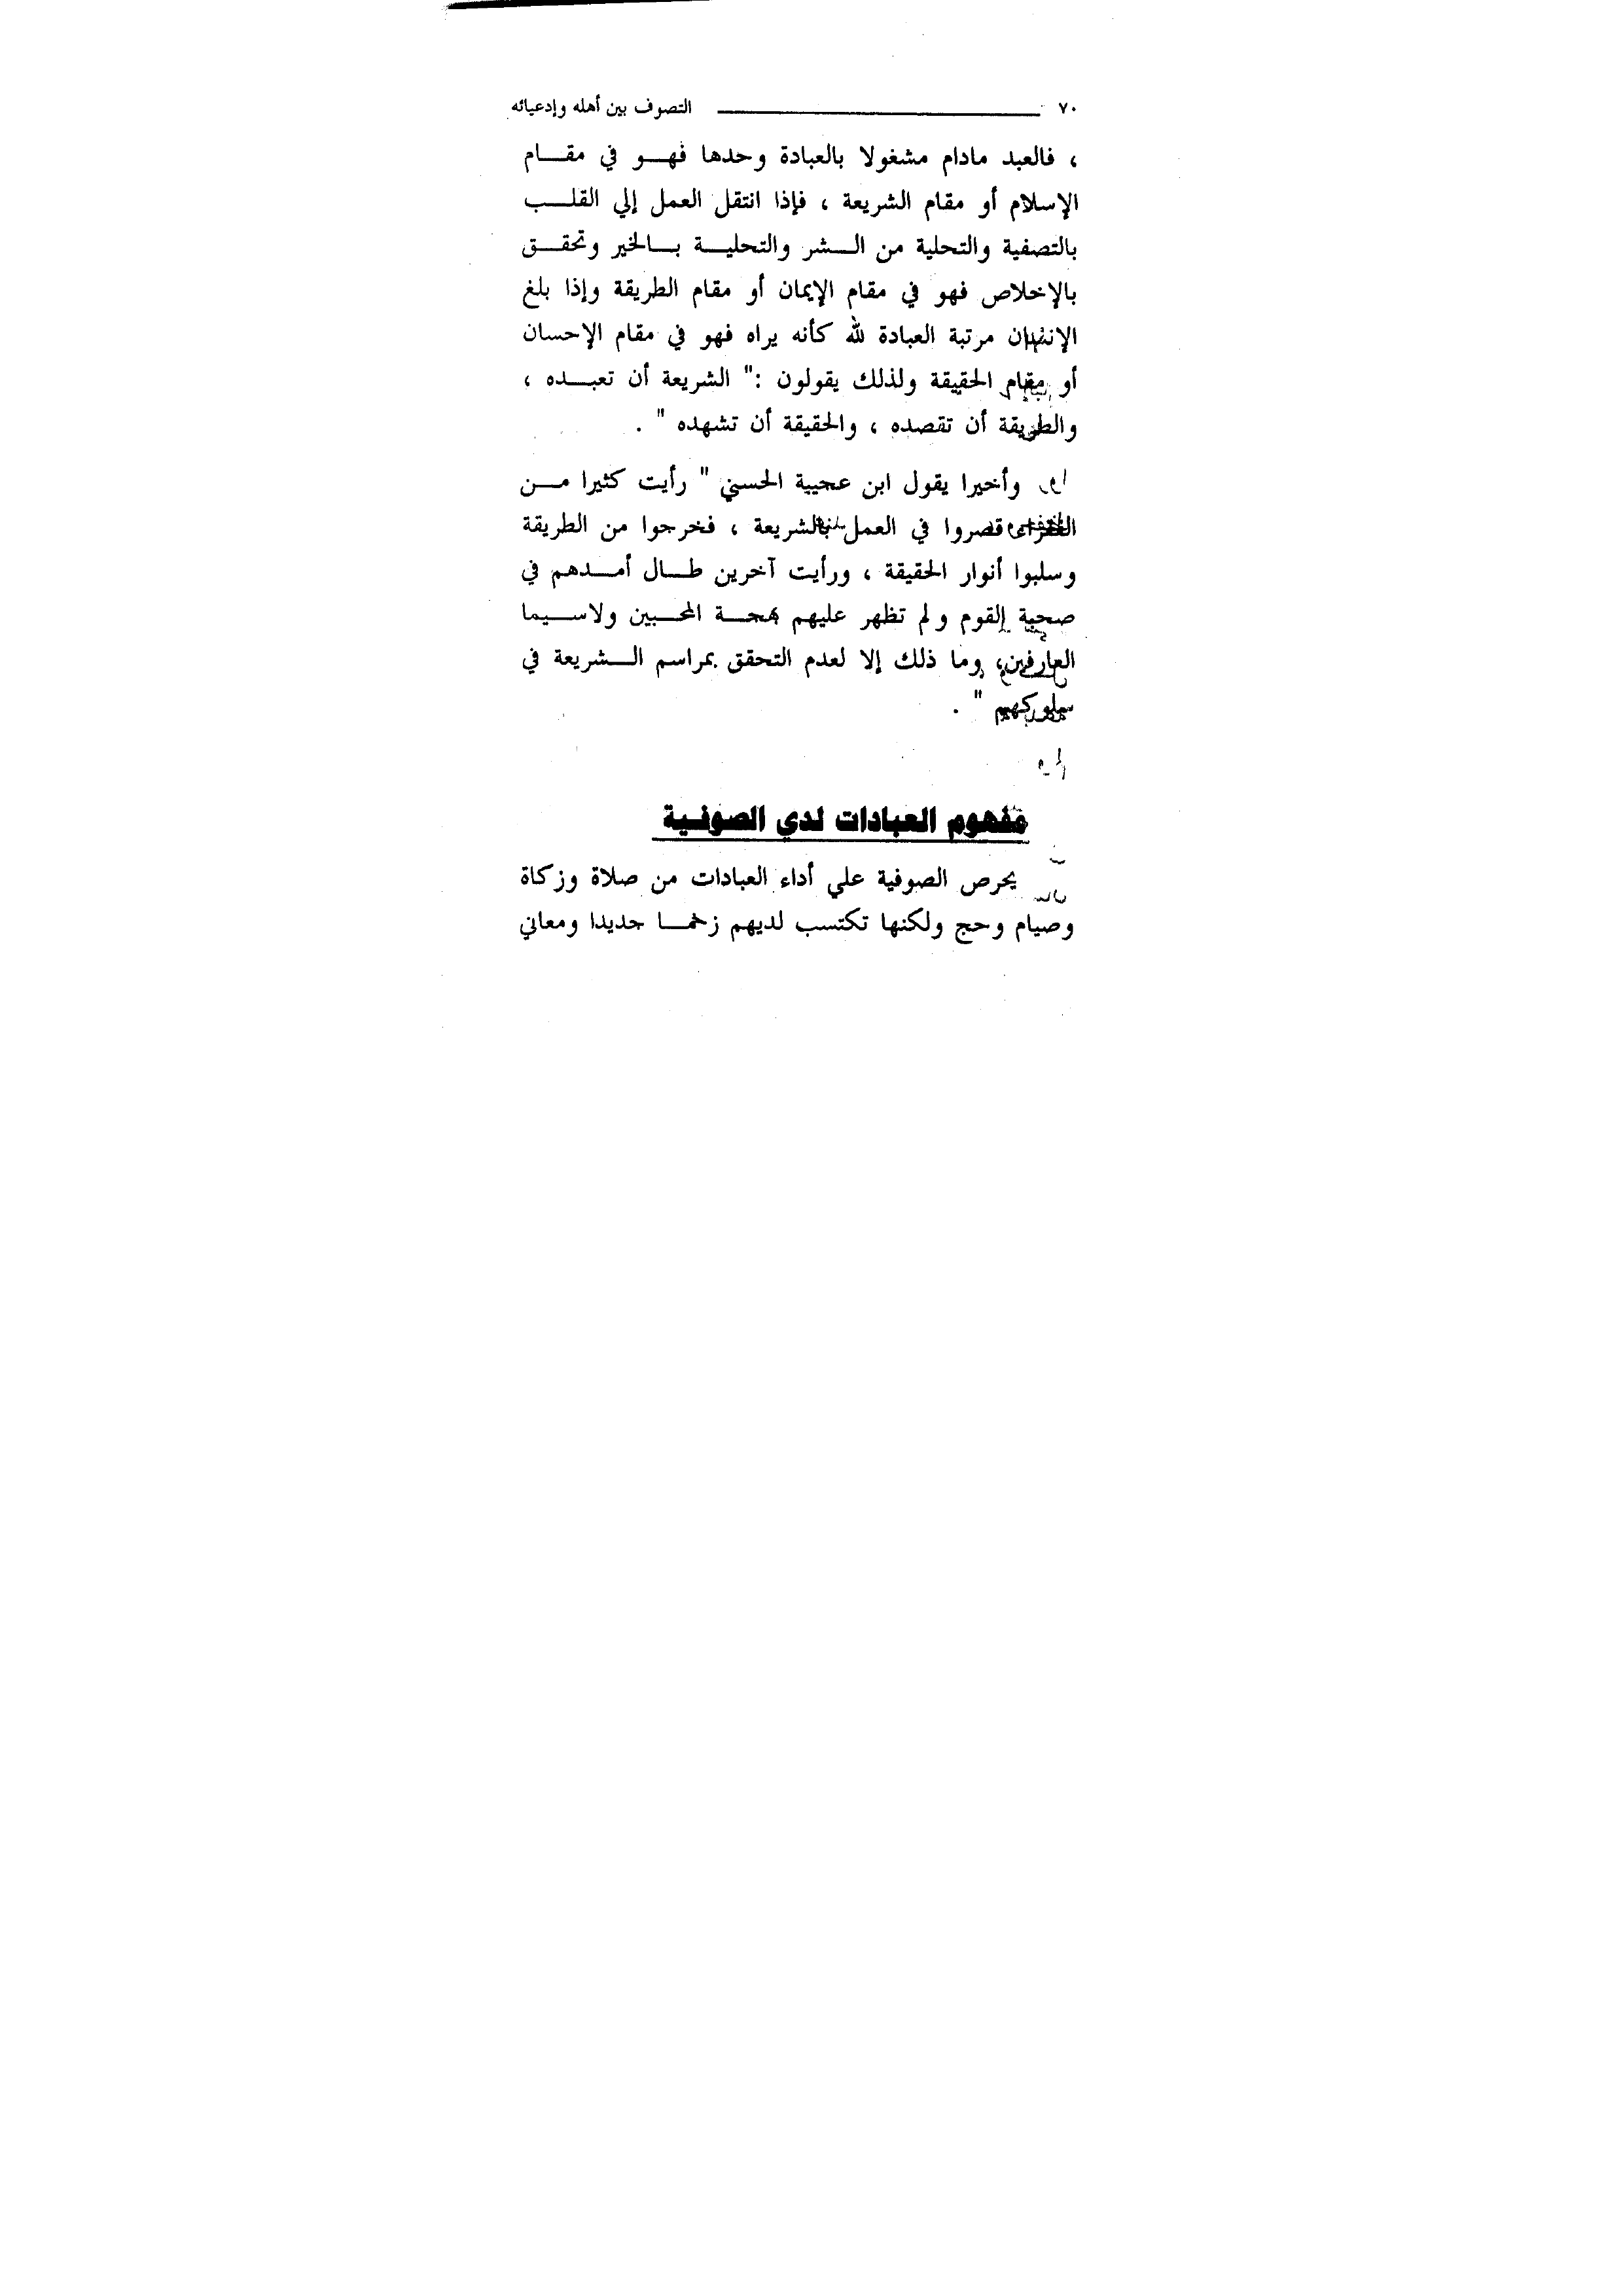 ٧٠ التصوف بين أهله وإدعيائه
، فالعبد مادام مشغولا بالعبادة وحدها فهو في مقام
الإسلام أو مقام الشريعة ، فإذا انتقل العمل إلي القلب
بالتصفية والتحلية من الشر والتحلية بالخير وتحقق
بالإخلاص فهو في مقام الإيمان أو مقام الطريقة وإذا بلغ
الإنسان مرتبة العبادة لله كأنه يراه فهو في مقام الإحسان
أو مقام الحقيقة ولذلك يقولون :" الشريعة أن تعبده ،
والطريقة أن تقصده ، والحقيقة أن تشهده " .
وأخيرا يقول ابن عجيبة الحسني " رأيت كثيرا من
الفقراء قصروا في العمل بالشريعة ، فخرجوا من الطريقة
وسلبوا أنوار الحقيقة ، ورأيت آخرين طال أمدهم في
صحبة القوم ولم تظهر عليهم بهجة المحبين ولاسيما
العارفين، وما ذلك إلا لعدم التحقق بمراسم الشريعة في
سلوكهم " .
مفهوم العبادات لدي الصوفية
يحرص الصوفية علي أداء العبادات من صلاة وزكاة
وصيام وحج ولكنها تكتسب لديهم زخما جديدا ومعاني